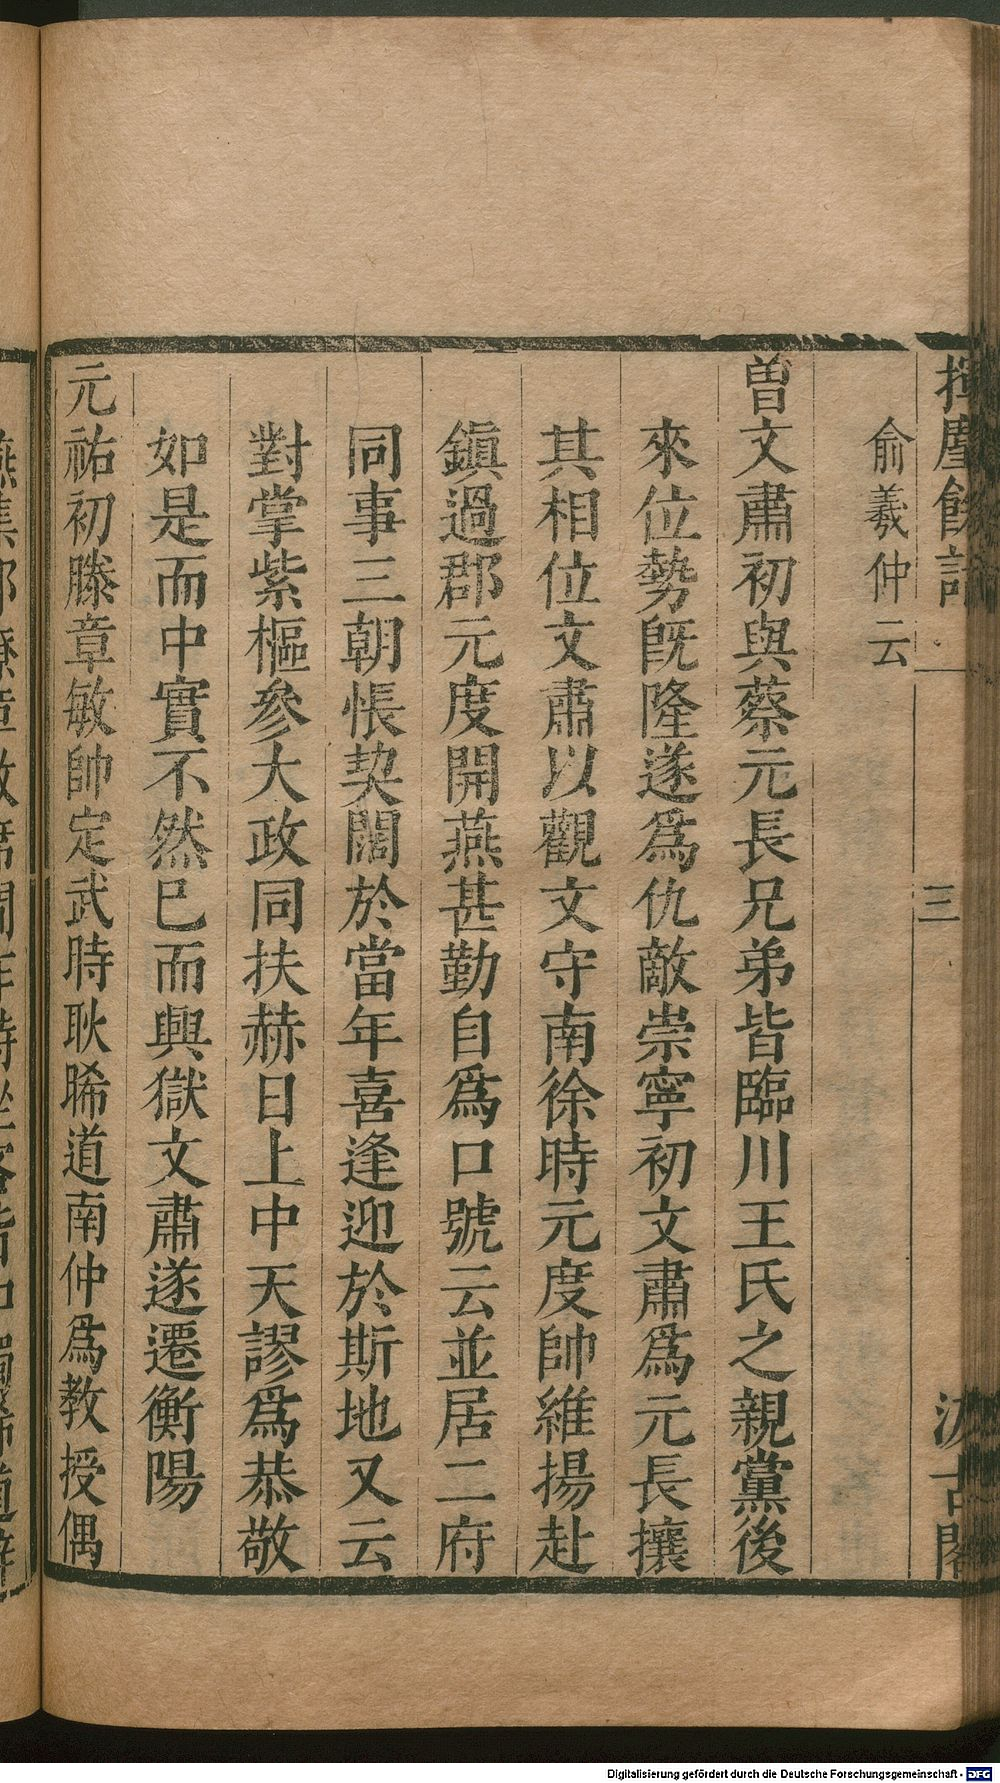 揮麈餘話 一 三 汲古閣
俞羲仲云
曾文肅初與蔡元長兄弟皆臨川王氏之親黨後
來位勢旣隆遂爲仇敵崇寧初文肅爲元長攘
其相位文肅以觀文守南徐時元度帥維揚赴
鎭過郡元度開燕甚勤自爲口號云並居二府
同事三朝悵契闊於當年喜逢迎於斯地又云
對掌紫樞參大政同扶赫日上中天謬爲恭敬
如是而中實不然巳而興獄文肅遂遷衡陽
元祐初滕章敏帥定武時耿晞道南仲爲教授偶
Digitalisierung gefördert durch die Deutsche Forschungsgemeinschaft - DFG